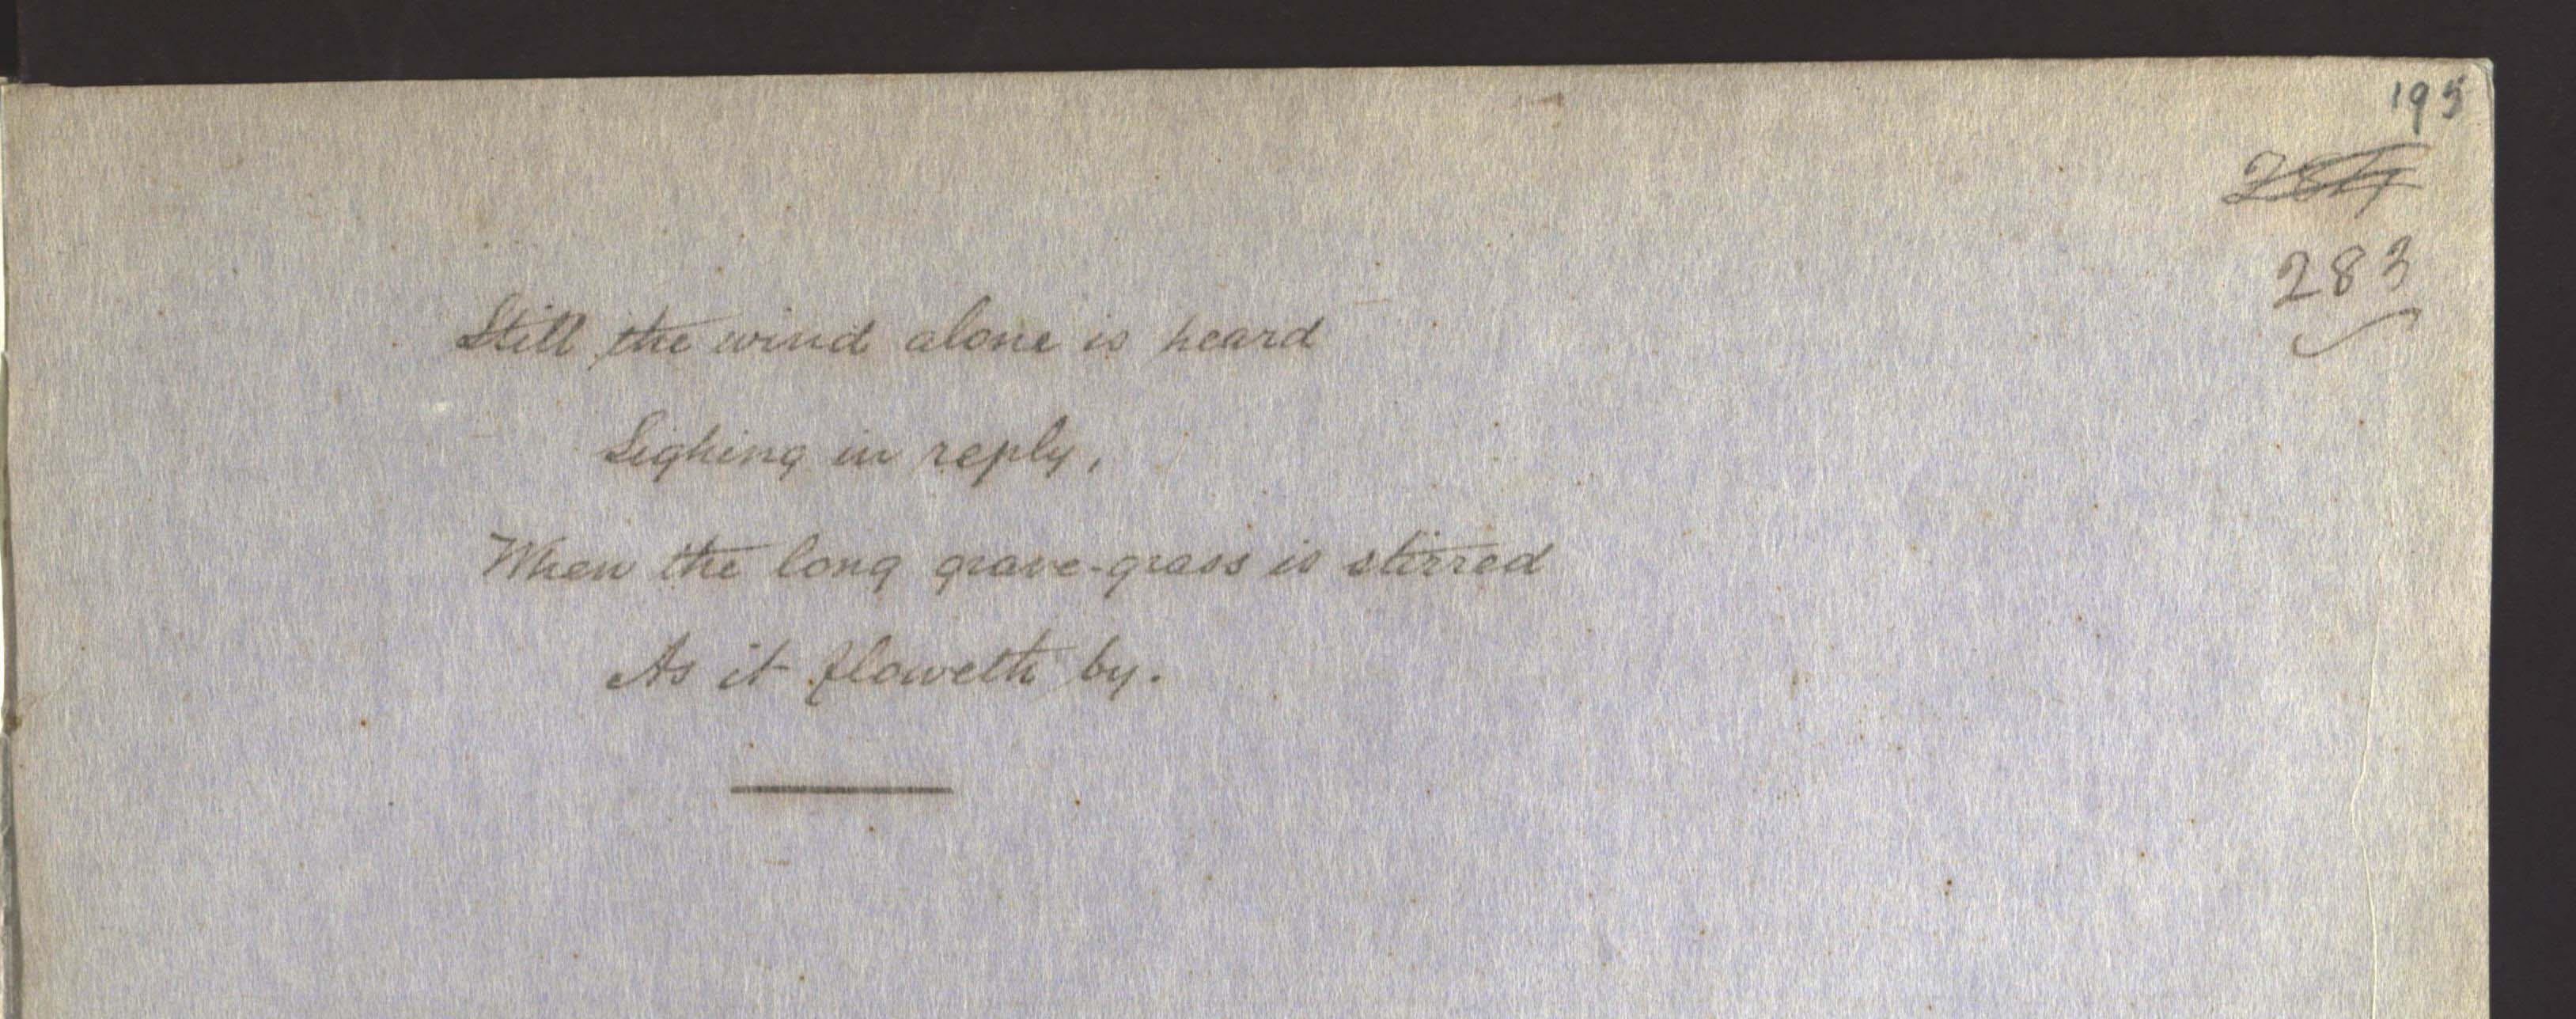 195
283
Still the wind alone is heard
Sighing in reply,
When the long grave-grass is stirred
As it floweth by.